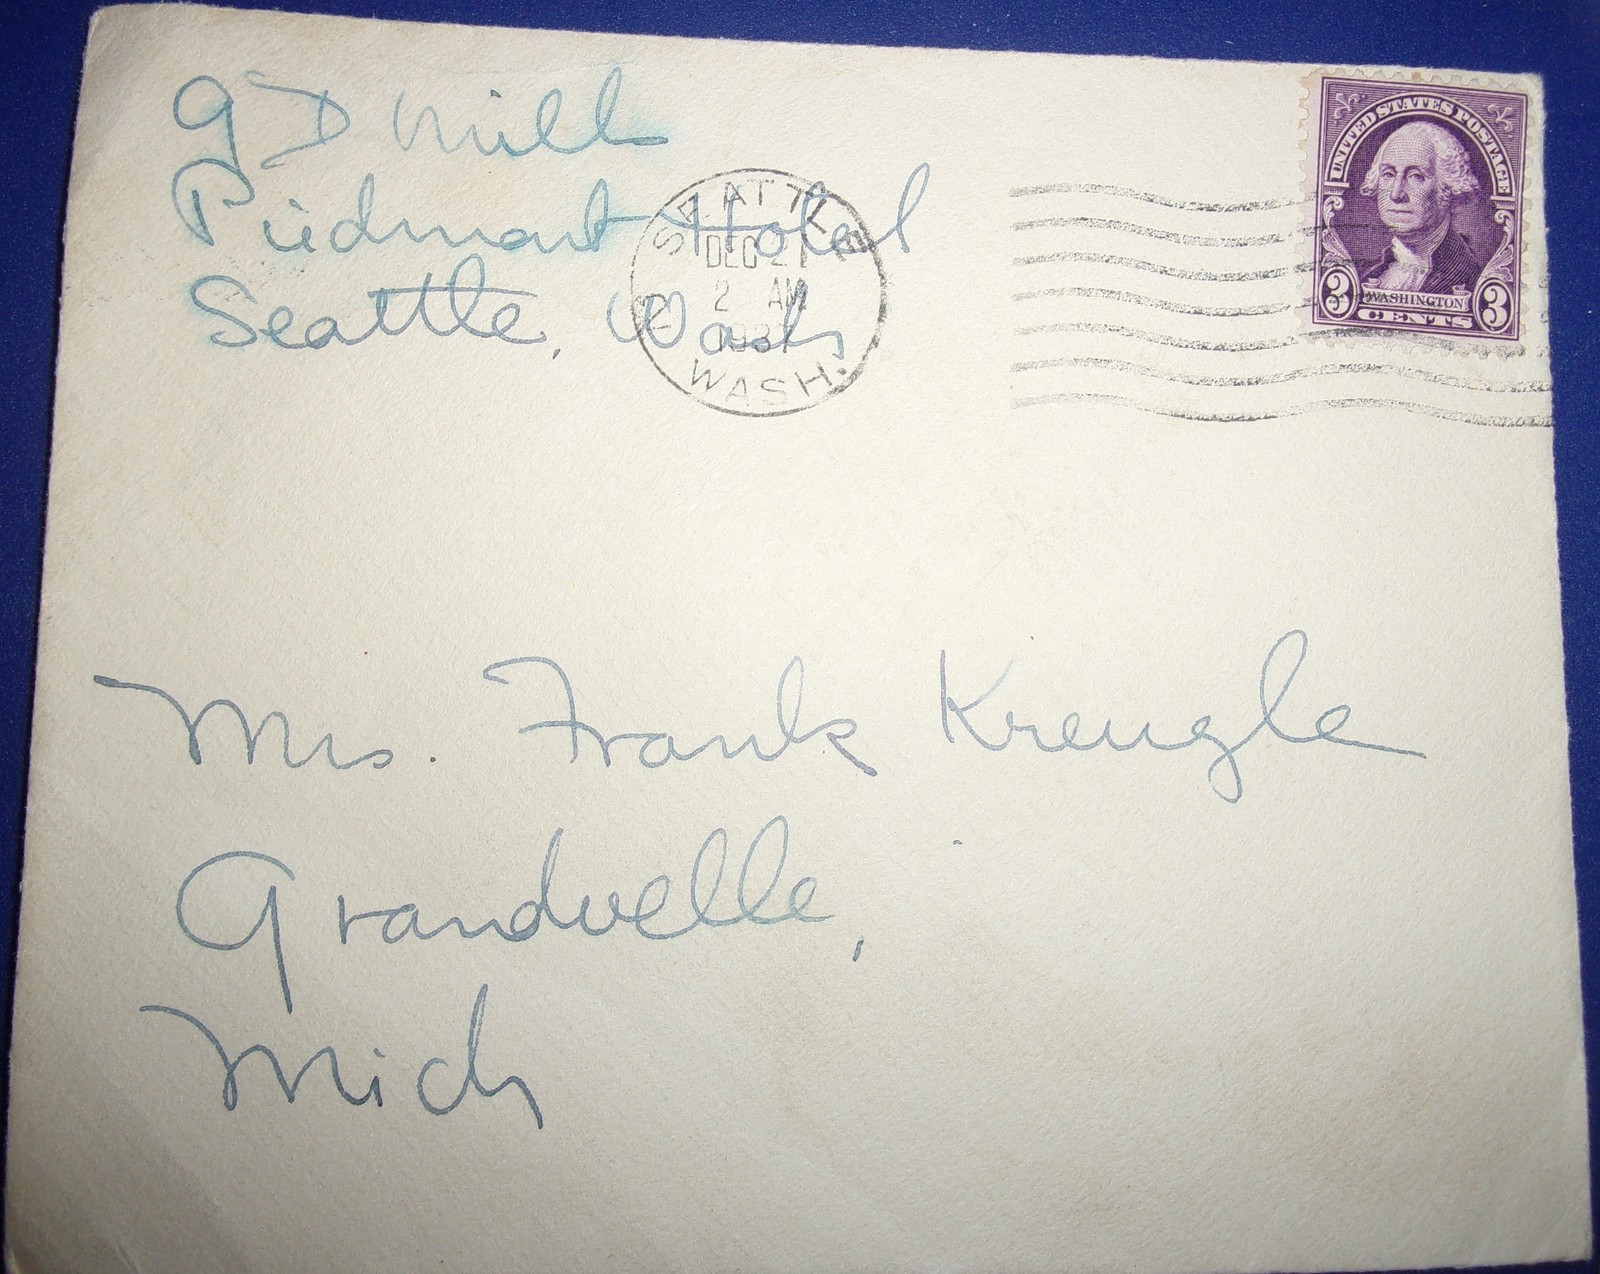 G D Mills
Piedmont Hotel
Seattle, Wash
SEATTLE
DEC 21
2 AM
1937
WASH.
UNITED STATES POSTAGE
3 WASHINGTON 3
CENTS
Mrs. Frank Kreugle
Grandville,
Mich